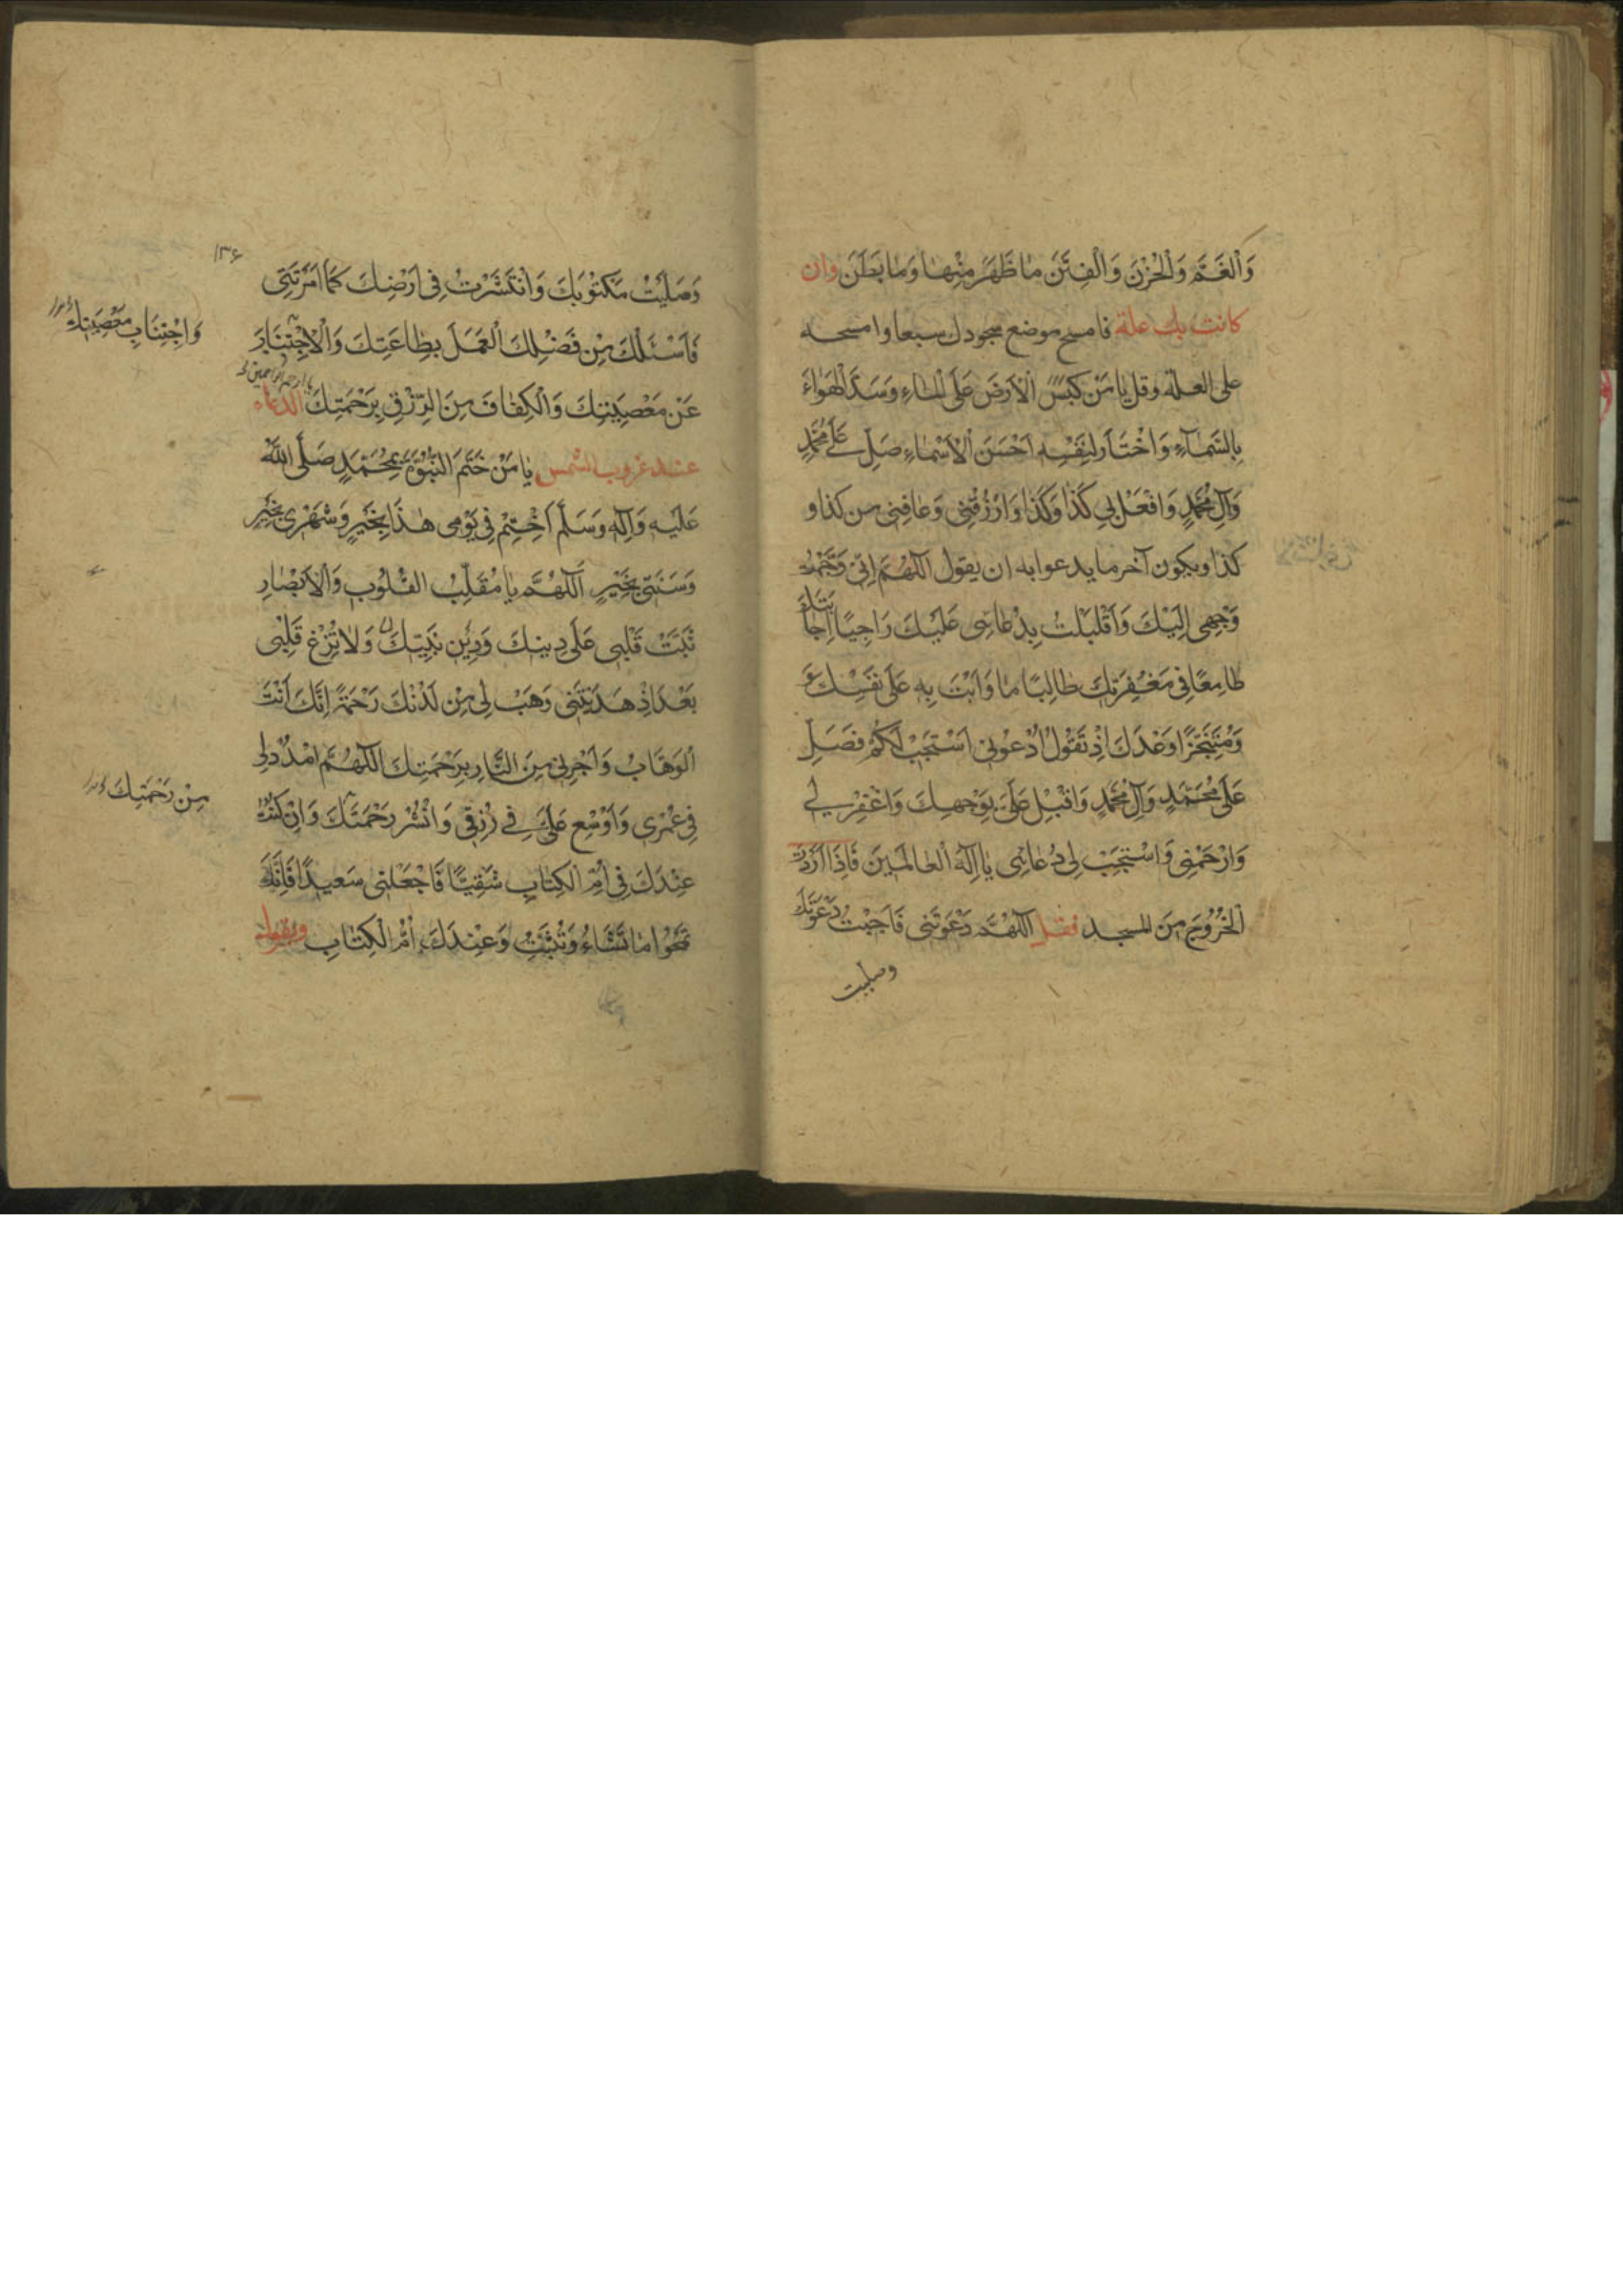 وَالْغَمَّ وَالْحُزْنَ وَالْفِتَنَ مٰا ظَهَرَ مِنْهٰا وَمٰا بَطَنَ وان
كانت بك علة فامسح موضع سجودك سبعا وامسحه
على العلة وقل يٰا مَنْ كَبَسَ الْاَرْضَ عَلَى الْمٰاءِ وَسَدَّ الْهَوٰاءَ
بِالسَّمٰآءِ وَاخْتٰارَ لِنَفْسِهِ اَحْسَنَ الْاَسْمٰاءِ صَلِّ عَلٰى مُحَمَّدٍ
وَآلِ مُحَمَّدٍ وَافْعَلْ بِي كَذٰا وَكَذٰا وَارْزُقْنِى وَعٰافِنِى من كذا و
كذا ويكون آخر ما يدعوا به ان يقول اللّهُمَّ اِنِّى وَجَّهْتُ
وَجْهِى اِلَيْكَ وَاَقْبَلْتُ بِدُعٰائِى عَلَيْكَ رَاجِيًا اِجٰابَتَكَ
طٰامِعًا فِى مَغْفِرَتِكَ طٰالِبًا مٰا وَاَيْتَ بِهِ عَلٰى نَفْسِكَ
وَمُتَنَجِّزًا وَعْدَكَ اِذْ تَقُولُ ادْعُونِى اَسْتَجِبْ لَكُمْ فَصَلِّ
عَلٰى مُحَمَّدٍ وَآلِ مُحَمَّدٍ وَاَقْبِلْ عَلَىَّ بِوَجْهِكَ وَاغْفِرْ لِي
وَارْحَمْنِى وَاسْتَجِبْ لِى دُعٰائِى يٰا اِلٰهَ الْعٰالَمِينَ فَاِذَا اَرَدْتَ
الْخُرُوجَ مِنَ المسجد فقل اللّهُمَّ دَعَوْتَنِى فَاَجَبْتُ دَعْوَتَكَ
وصليت
١٣۶
وَصَلَّيْتُ مَكْتُوبَكَ وَانْتَشَرْتُ فِى اَرْضِكَ كَمٰا اَمَرْتَنِى
فَاَسْئَلُكَ مِنْ فَضْلِكَ الْعَمَلَ بِطٰاعَتِكَ وَالْاِجْتِنٰابَ
وَاجْتِنَابِ مَعْصِيَتِكَ
عَنْ مَعْصِيَتِكَ وَالْكِفٰافَ مِنَ الرِّزْقِ بِرَحْمَتِكَ الدعاء
يا ارحم الراحمين
عند غروب الشمس يٰا مَنْ خَتَمَ النُّبُوَّةَ بِمُحَمَّدٍ صَلَّى اللّٰهُ
عَلَيْهِ وَآلِهِ وَسَلَّمَ اخْتِمْ لِى فِى يَوْمِى هٰذَا بِخَيْرٍ وَشَهْرِى بِخَيْرٍ
وَسَنَتِى بِخَيْرٍ اَللّهُمَّ يٰا مُقَلِّبَ الْقُلُوبِ وَالْاَبْصٰارِ
ثَبِّتْ قَلْبِى عَلٰى دِينِكَ وَدِينِ نَبِيِّكَ وَلٰا تُزِغْ قَلْبِى
بَعْدَ اِذْ هَدَيْتَنِى وَهَبْ لِى مِنْ لَدُنْكَ رَحْمَةً اِنَّكَ اَنْتَ
الْوَهّٰابُ وَاَجِرْنِى مِنَ النّٰارِ بِرَحْمَتِكَ اللّهُمَّ امْدُدْ لِى
مِنْ رَحْمَتِكَ
فِى عُمْرِى وَاَوْسِعْ عَلَىَّ فِي رِزْقِى وَانْشُرْ رَحْمَتَكَ وَاِنْ كُنْتُ
عِنْدَكَ فِى اُمِّ الْكِتٰابِ شَقِيًّا فَاجْعَلْنِى سَعِيدًا فَاِنَّكَ
تَمْحُوا مٰا تَشٰاءُ وَتُثْبِتُ وَعِنْدَكَ اُمُّ الْكِتٰابِ ويقول